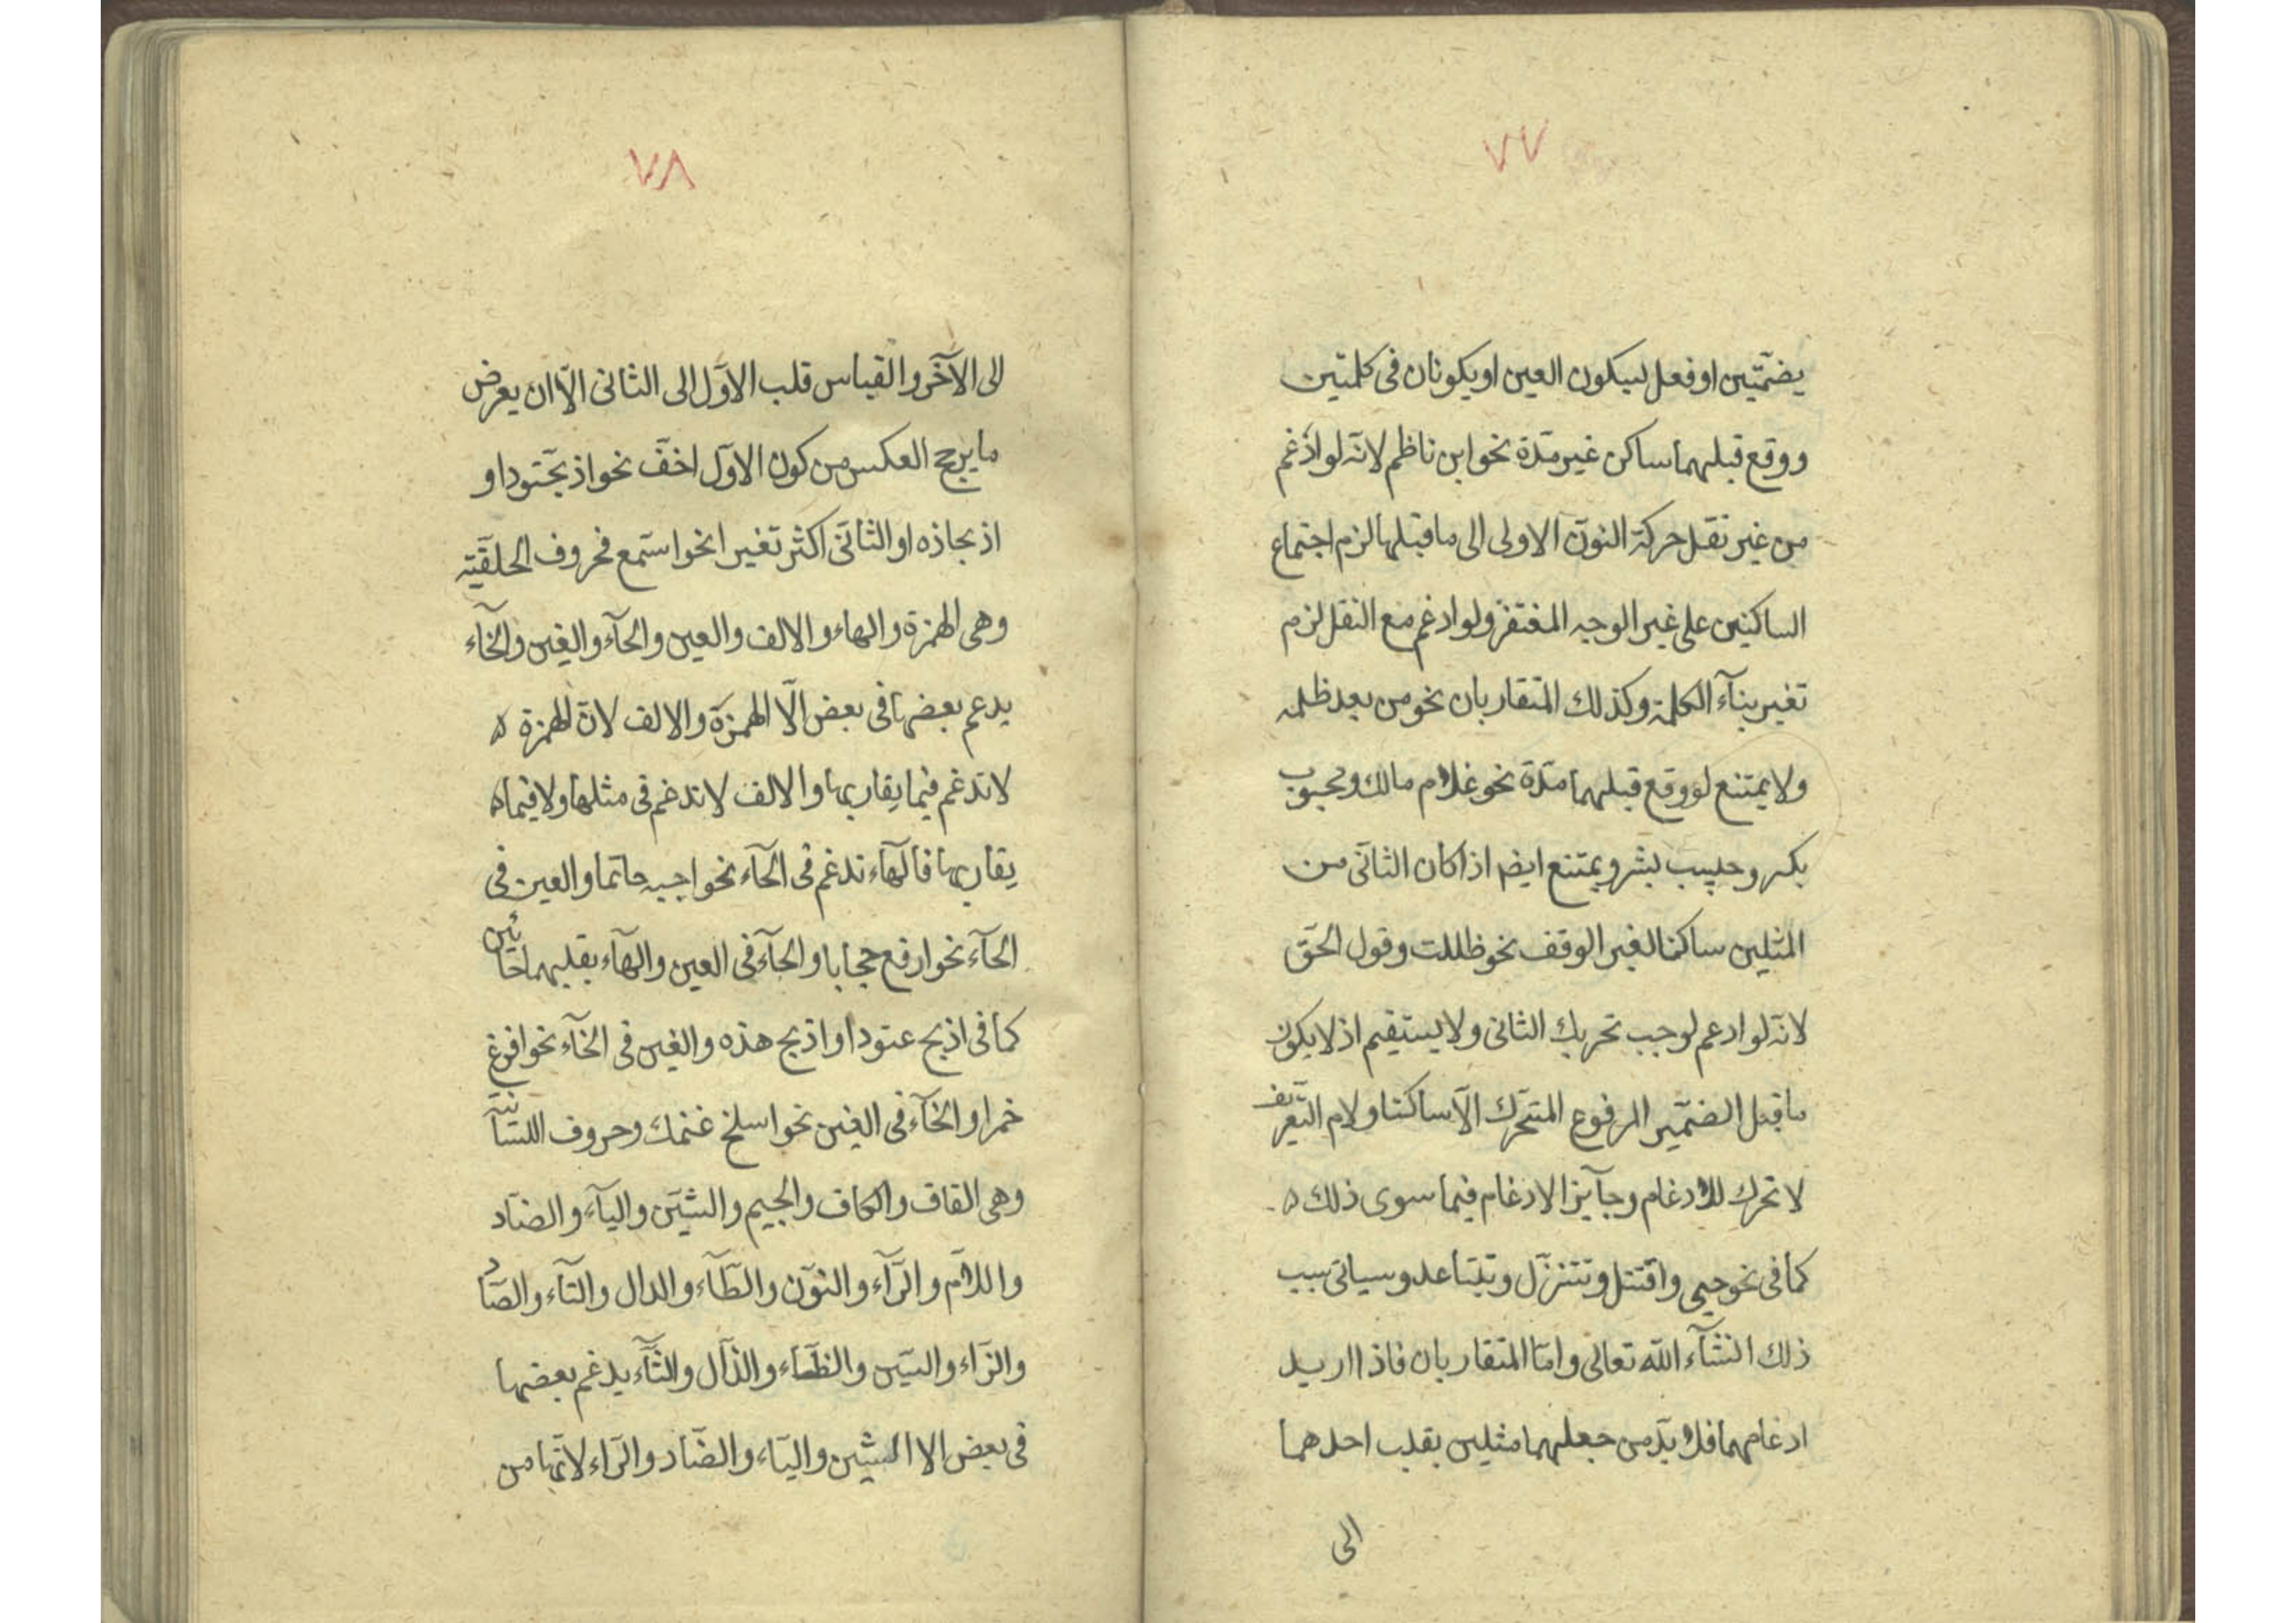 ٧٧
بضمّتين او فعل لسكون العين او يكونان فى كلمتين
ووقع قبلهما ساكن غير مدّة نحو ابن ناظم لانّه لو ادغم
من غير نقل حركة النون الاولى الى ما قبلها لزم اجتماع
الساكنين على غير الوجه المغتفر ولو ادغم مع النقل لزم
تغير بنآء الكلمة وكذلك المتقاربان نحو من بعد ظلمه
ولا يمتنع لو وقع قبلهما مدّة نحو غلام مالك ومحبوب
بكر وحبيب بشر ويمتنع ايضا اذا كان الثانى من
المثلين ساكنا لغير الوقف نحو ظللت وقول الحقّ
لانّه لو ادغم لوجب تحريك الثانى ولا يستقيم اذ لا يكون
ما قبل الضمير المرفوع المتحرّك الّا ساكنا ولام التّعريف
لا تحرك للادغام وجآيز الادغام فيما سوى ذلك ه
كما فى نحو حيى واقتتل وتتنزّل وتتباعد وسياتى سبب
ذلك انشآء اللّه تعالى وامّا المتقاربان فاذا اريد
ادغامهما فلا بدّ من جعلهما مثلين بقلب احدهما
الى
٧٨
الى الآخر والقياس قلب الاوّل الى الثانى الّا ان يعرض
ما يرجح العكس من كون الاوّل اخفّ نحو اذبحّتودا و
اذبحاذه او الثانى اكثر تغيرا نحو استمع فحروف الحلقيّة
وهى الهمزة والهاء والالف والعين والحآء والغين والخآء
يدغم بعضها فى بعض الّا الهمزة والالف لانّ الهمزة ه
لا تدغم فيما يقاربها والالف لا تدغم فى مثلها ولا فيما ه
يقاربها فالهآء تدغم فى الحآء نحو اجبه حاتما والعين فى
الحآء نحو ارفع حجابا والحآء فى العين والهآء بقلبهما حائين
كما فى اذبح عتودا واذبح هذه والغين فى الخآء نحو افرغ
خمرا والخآء فى الغين نحو اسلخ غنمك وحروف اللسانيّة
وهى القاف والكاف والجيم والشين واليآء والضاد
واللام والرّآء والنون والطّآء والدال والتآء والصّاد
والزاء والسين والظاء والذّال والثّآء يدغم بعضها
فى بعض الا الشين والياء والضّاد والرّاء لانّها من